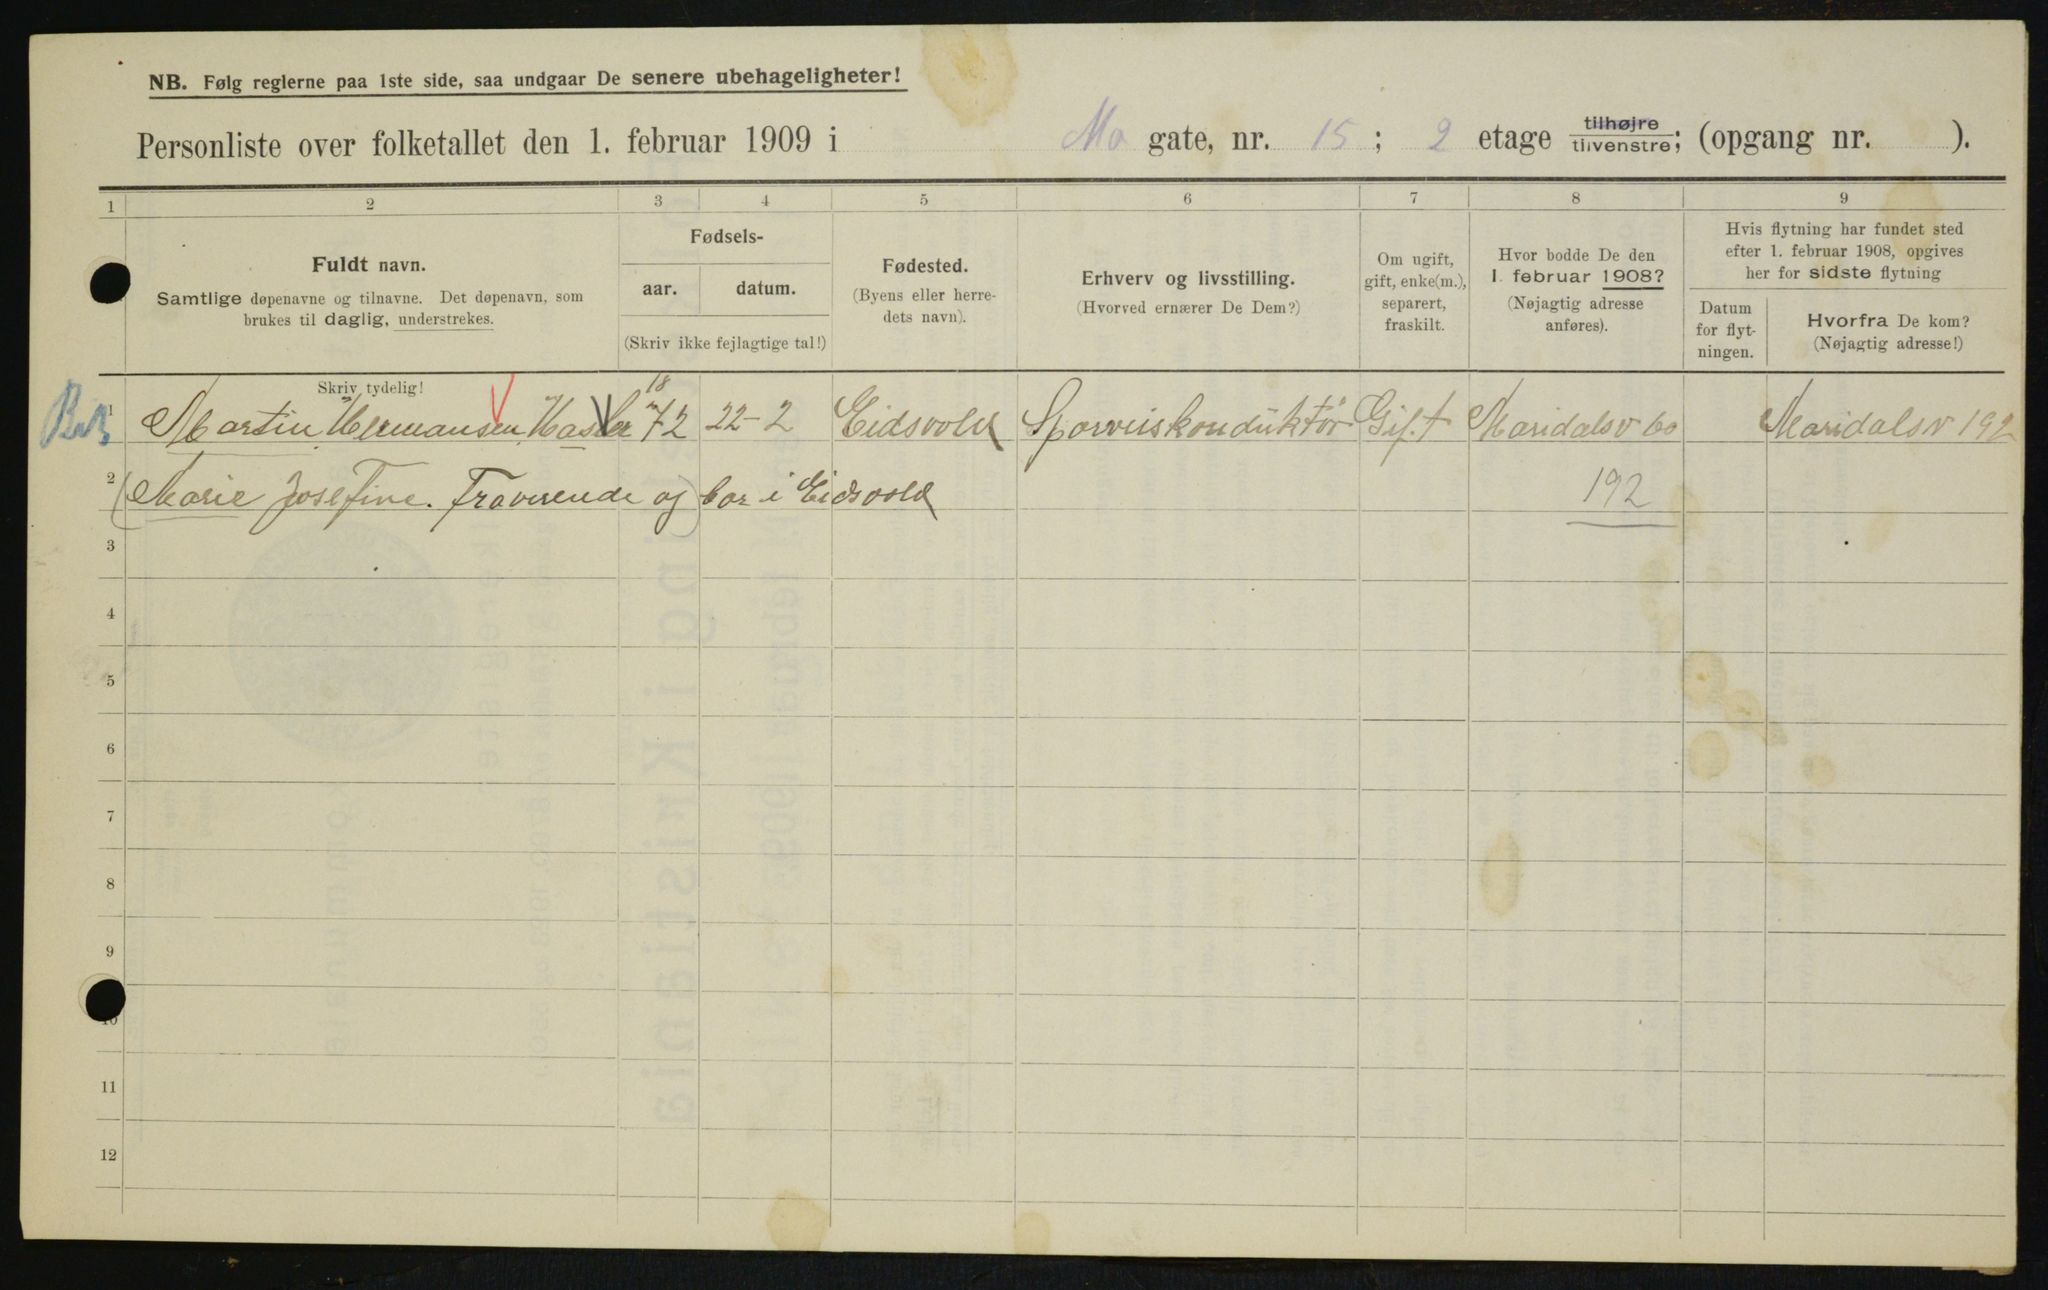 NB. Følg reglerne paa 1ste side, saa undgaar De senere ubehageligheter!
Personliste over folketallet den 1. februar 1909 i Mo gate, nr. 15; 2 etage tilhøjre tilvenstre; (opgang nr. ).
1 2 3 4 5 6 7 8 9
Fuldt navn.
Samtlige døpenavne og tilnavne. Det døpenavn, som
brukes til daglig, understrekes.
Skriv tydelig!
Fødsels-
aar. datum.
(Skriv ikke fejlagtige tal!)
Fødested.
(Byens eller herre-
dets navn).
Erhverv og livsstilling.
(Hvorved ernærer De Dem?)
Om ugift,
gift, enke(m.),
separert,
fraskilt.
Hvor bodde De den
1. februar 1908?
(Nøjagtig adresse
anføres).
Hvis flytning har fundet sted
efter 1. februar 1908, opgives
her for sidste flytning
Datum
for flyt-
ningen.
Hvorfra De kom?
(Nøjagtig adresse!)
18
1 Martin Hermansen 72 22-2 Eidsvold Sporveiskonduktør Gift Maridalsv 60 Maridalsv 192
2 (Marie Josefine. Fraverende og) bor i Eidsvold 192
3
4
5
6
7
8
9
10
11
12